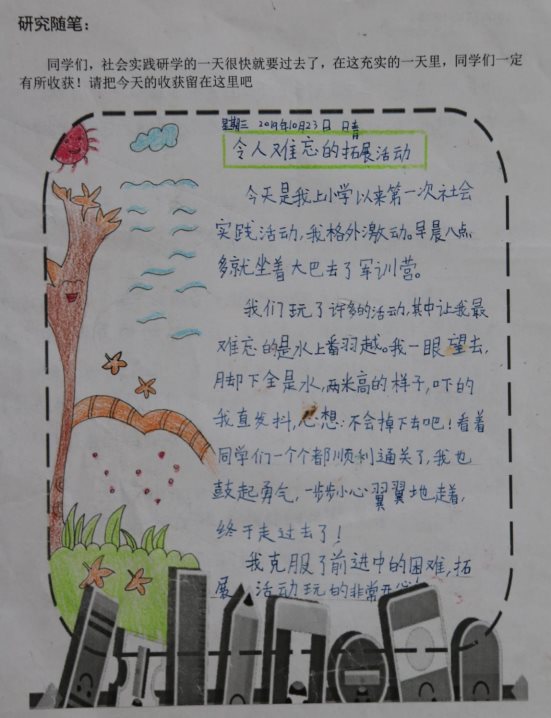 研究随笔：
同学们，社会实践研学的一天很快就要过去了，在这充实的一天里，同学们一定
有所收获！请把今天的收获留在这里吧
星期三 2019年10月23日 日青
令人难忘的拓展活动
今天是我上小学以来第一次社会
实践活动，我格外激动。早晨八点
多就坐着大巴去了军训营。
我们玩了许多的活动，其中让我最
难忘的是水上番羽越。我一眼望去，
脚下全是水，两米高的样子，吓的
我直发抖，心想：不会掉下去吧！看着
同学们一个个都顺利通关了，我也
鼓起勇气，一步步小心翼翼地走着，
终于走过去了！
我克服了前进中的困难，拓
展活动玩的非常开心